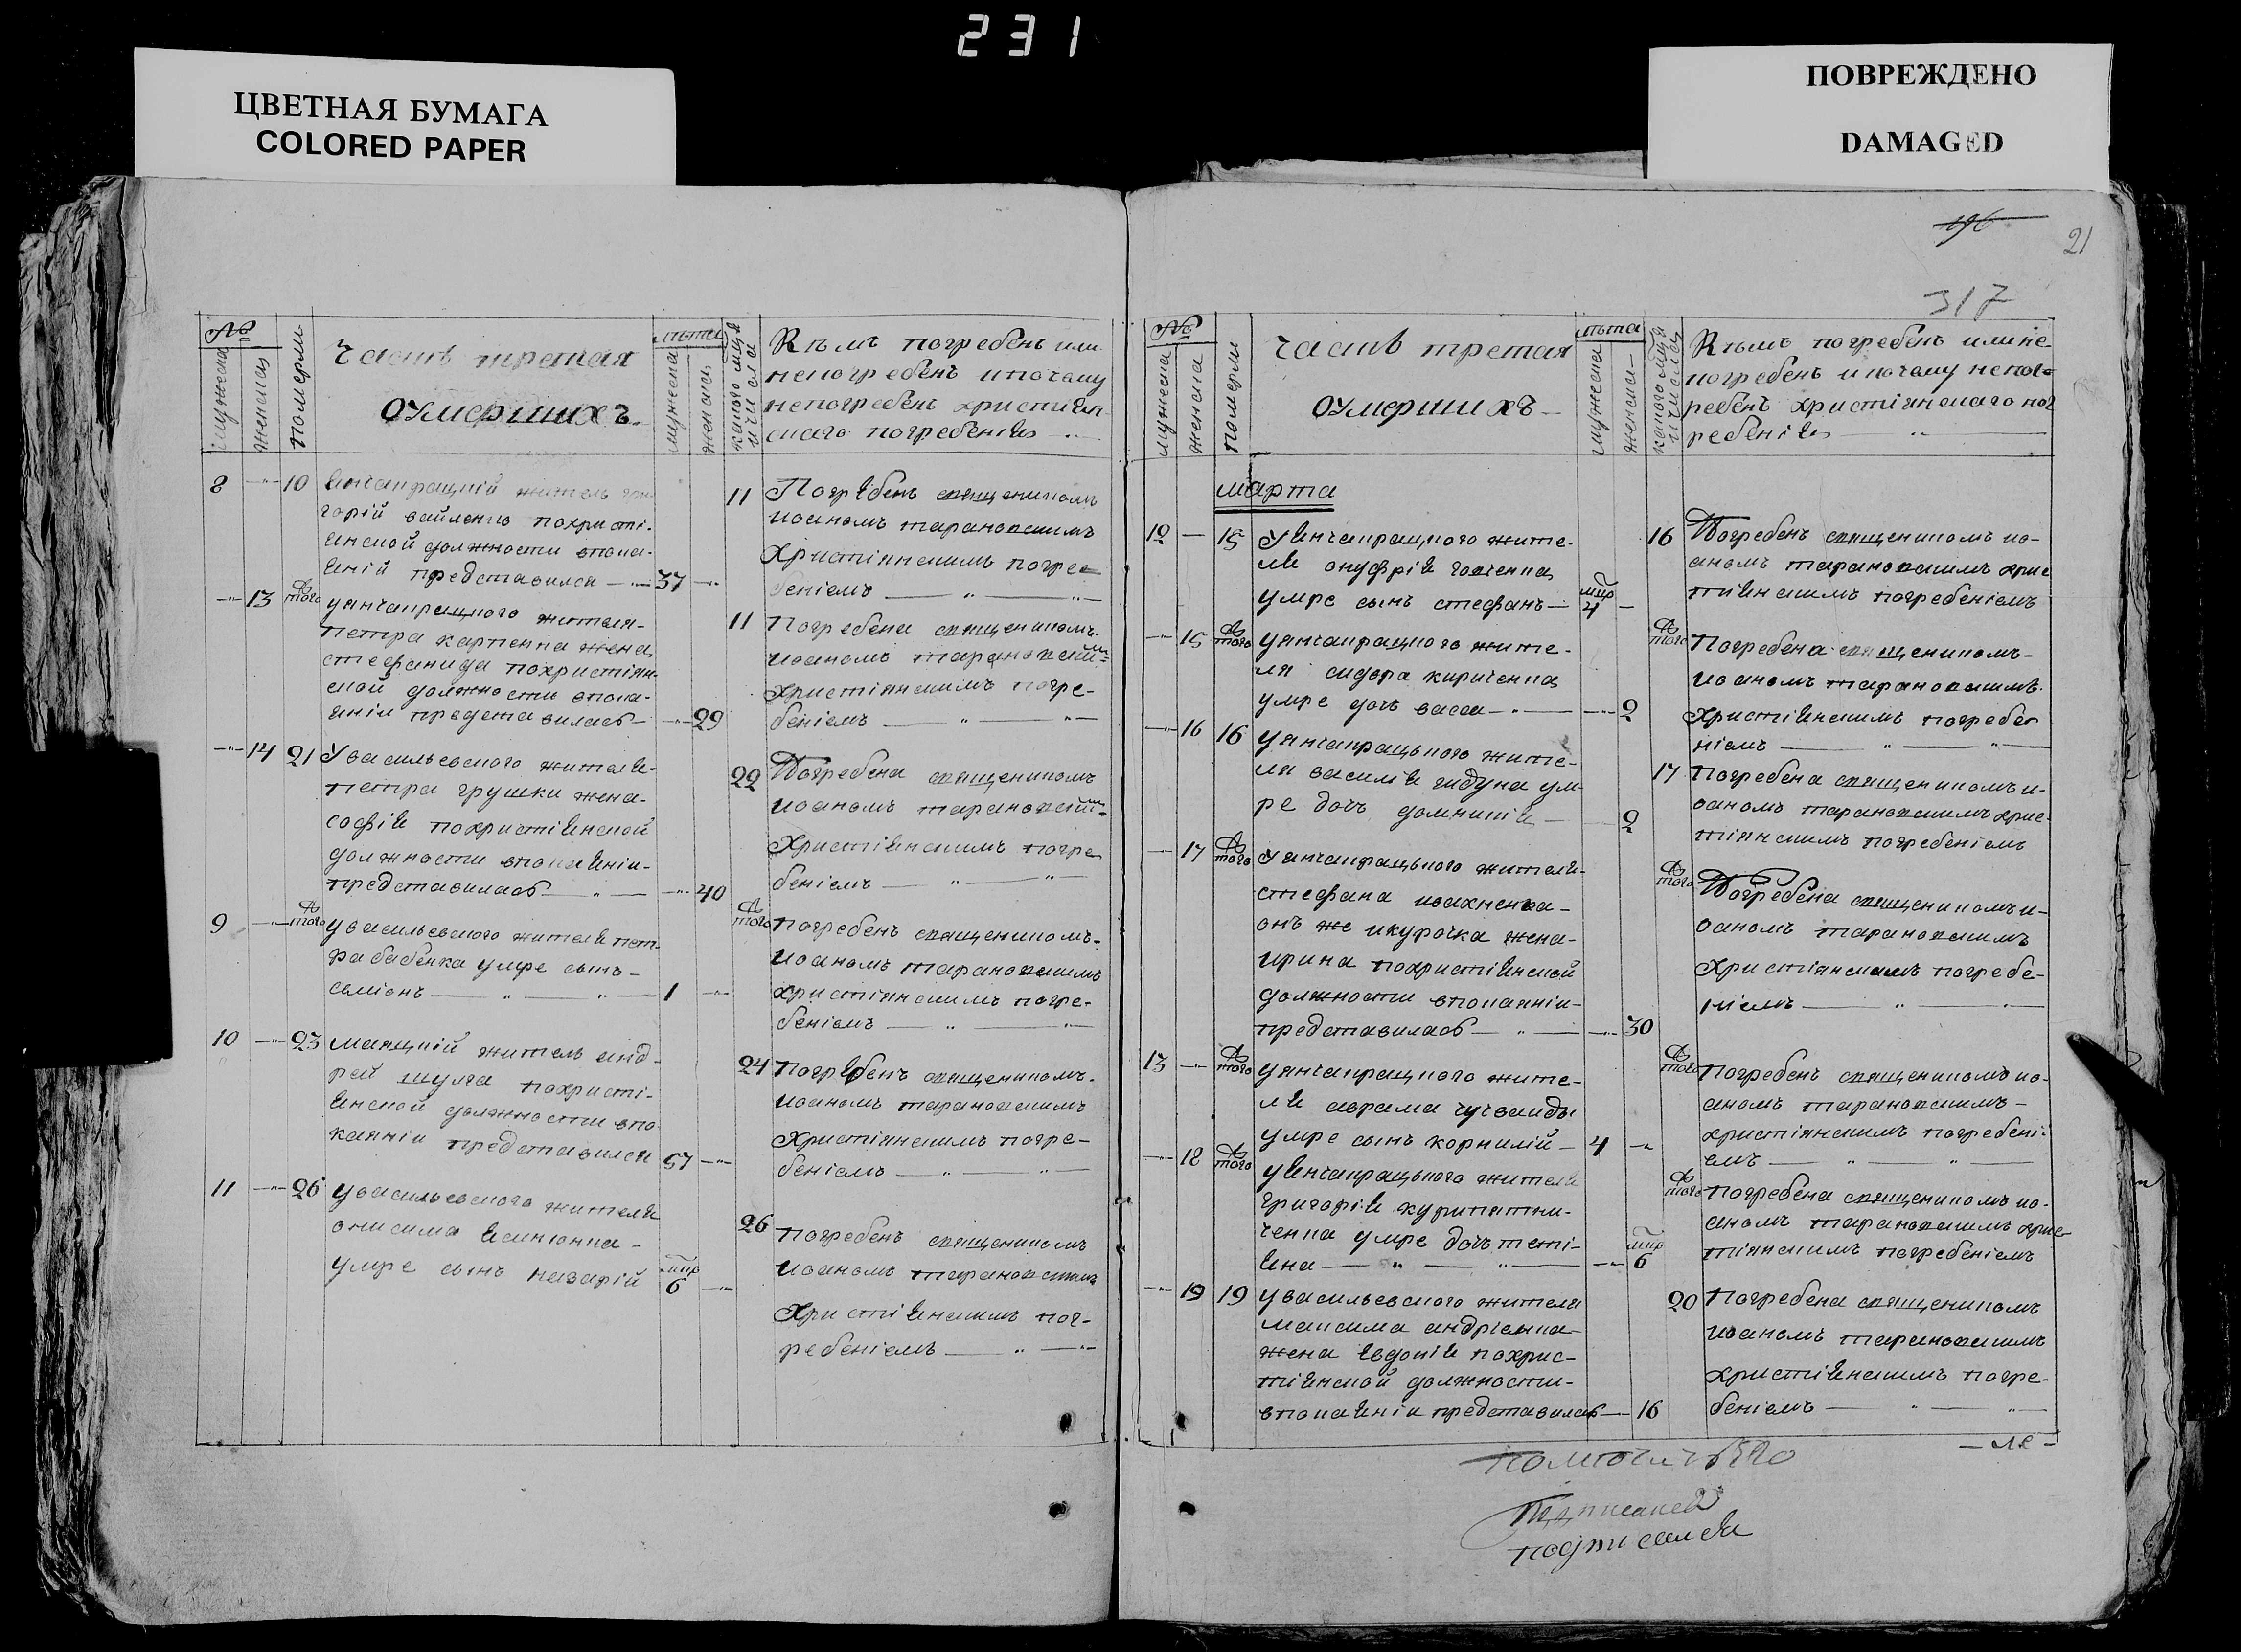 231
ЦВЕТНАЯ БУМАГА
COLORED PAPER
ПОВРЕЖДЕНО
DAMAGED
196
21
317
№
мужеска
женска
померли
Часть третая
О УМЕРШИХЪ
лѣта
мужеска
женска
каного мцѧ и числа
Кѣмъ погребенъ или
непогребенъ и почему
непогребенъ христіян
скаго погребенія
8 10
горій василенко похристі-
янской должности впока-
яніи представился 37
11 Погребенъ священикомъ
иоаномъ тарановскимъ
Христіянскимъ погре
беніемъ
13 того
петра карпенка жена
стефанида похристіян-
ской должности впока-
яніи представилась 29
11 Погребена священикомъ
иоаномъ тарановским
Христіянскимъ погре-
беніемъ
14 21 У васильевского жителя
петра грушки жена
софія похристіянской
должности впокаяніи
представилась 40
22 Погребена священикомъ
иоаномъ тарановским
Христіянскимъ погре
беніемъ
9 того у васильевского жителя пет-
ра бабенка умре сынъ
симіонъ 1
того Погребенъ священикомъ
иоаномъ тарановскимъ
Христіянскимъ погре-
беніемъ
10 23 маяцкій житель анд-
рей шулга похристі-
янской должности впо
каяніи представился 57
24 Погребенъ священикомъ
иоаномъ тарановскимъ
Христіянскимъ погре-
беніемъ
11 26 у васильевского жителя
онисима
умре сынъ назарій 6
26 погребенъ священикомъ
иоаномъ тарановскимъ
Христіянскимъ пог-
ребеніемъ
№
мужеска
женска
померли
Часть третая
О УМЕРШИХЪ
лѣта
мужеска
женска
каного мцѧ и числа
Кѣмъ погребенъ или не-
погребенъ и почему непог-
ребенъ христіянскаго пог
ребенія
марта
12 15 жите-
ля онуфрія
умре сынъ стефанъ 4
16 Погребенъ священикомъ ио-
аномъ тарановскимъ хрис
тіянскимъ погребеніемъ
15 того жите-
ля сидора кириченка
умре дочь васса 2
того Погребена священикомъ
иоаномъ тарановскимъ
Христіянскимъ погребе
ніемъ
16 16 жите-
ля василія гидуна ум-
ре дочь домникія 2
17 Погребена священикомъ и-
оаномъ тарановскимъ хрис-
тіянскимъ погребеніемъ
17 того жителя
стефана ивахненка
онъ же и курочка жена
ирина похристіянской
должности впокаяніи
представилась 30
того Погребена священикомъ и-
оаномъ тарановскимъ
Христіянскимъ погребе-
ніемъ
13 того жите-
ля аврама
умре сынъ корнилій 4
того Погребенъ священикомъ ио-
аномъ тарановскимъ
христіянскимъ погребені-
емъ
18 того жителя
григорія курипятни-
ченка умре дочь теті-
яна 6
того Погребена священикомъ ио-
аномъ тарановскимъ хрис-
тіянскимъ погребеніемъ
19 19 у васильевского жителя
максима андріенка
жена евдокія похрис-
тіянской должности
впокаяніи представилась 16
20 Погребена священикомъ
иоаномъ тарановскимъ
христіянскимъ погре-
беніемъ